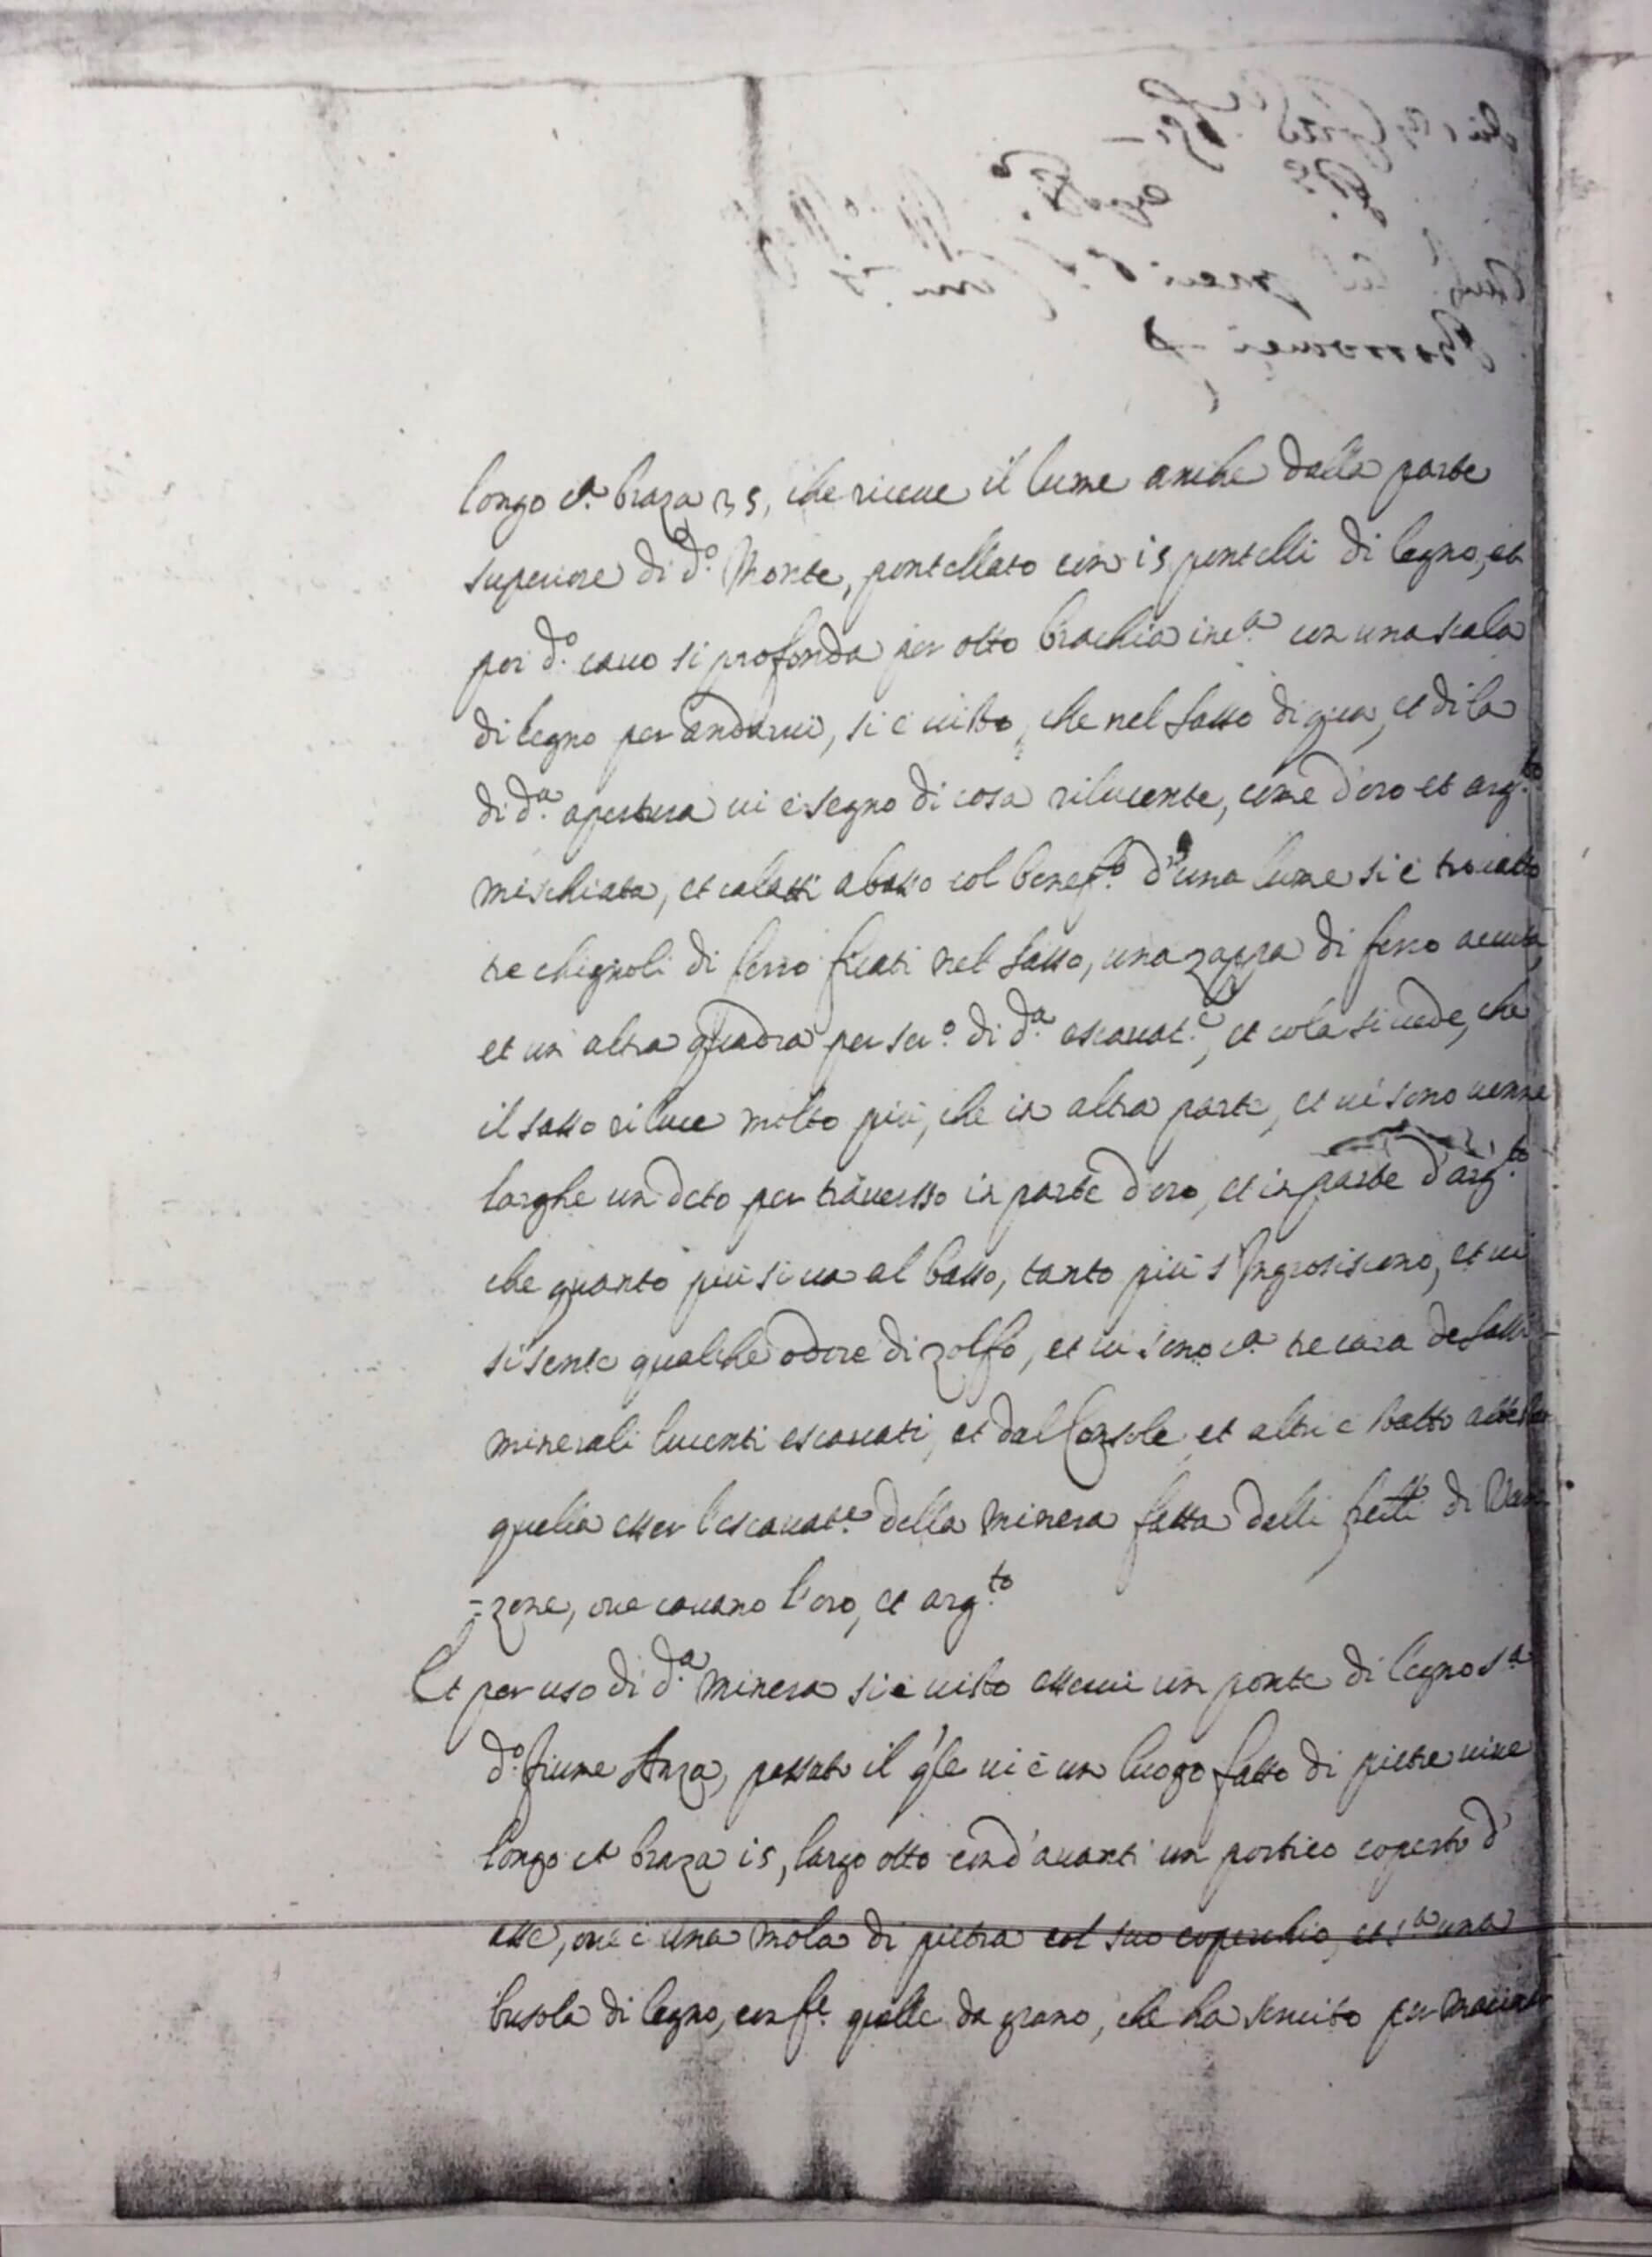 longo c.a braza 35, che riceue il lume anche dalla parte
superiore di d.o Monte, pontellato con 15 pontelli di legno, et
per d.o cauo si profonda per otto brachia inc.a con una scala
di legno per andarui, si è uisto, che nel sasso di qua, et di la
di d.a apertura ui è segno di cosa rilucente, come d'oro et arg.to
mischiata, et calatti abasso col benef.o d'una lume si è trouatto
tre chignoli di ferro ficati nel sasso, una zappa di ferro acuta,
et un altra quadra per ser.o di d.a escauat.e, et cola si uede, che
il sasso riluce molto più, che in altra parte, et ui sono uenne
larghe un deto per trauersso in parte d'oro, et in parte d'arg.to
che quanto più si ua al basso, tanto più s'Ingrosiscono, et ui
si sente qualche odore di zolfo, et ui sono c.a tre cara de sassi
minerali lucenti escauati, et dal Console et altri è statto
quella esser l'escauat.e della minera fatta dalli di
=zone, oue cauano l'oro, et arg.to
Et per uso di d.a minera si è uisto esserui un ponte di legno s.a
d.o fiume Anza, passato il q'le ui è un luogo fatto di pietre uiue
longo c.a braza 15, largo otto con d'auanti un portico coperto d'
asse, oue è una mola di pietra col suo coperchio, et s.a una
busola di legno, con f.e quelle da grano, che ha seruito per